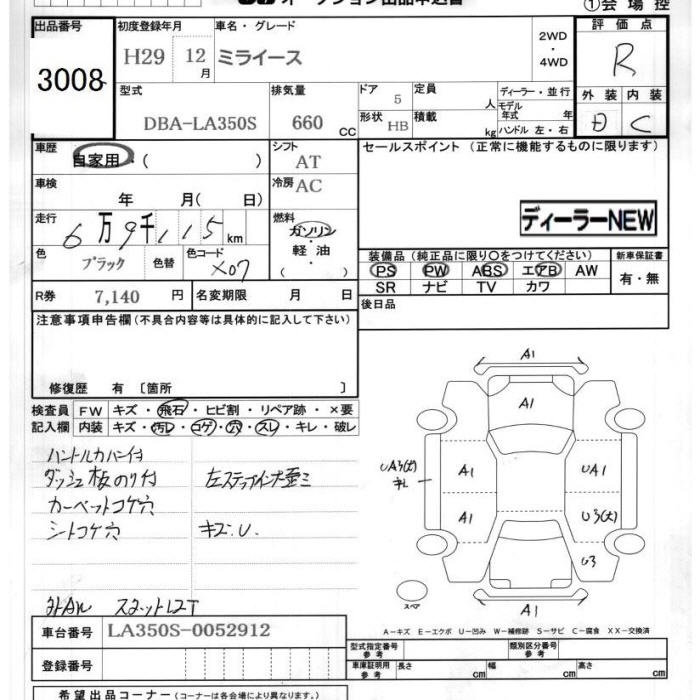 オークション出品申込書
①会場控
出品番号 初度登録年月 車名・グレード 評価点
3008 H29 12月 ミライース 2WD・4WD R
型式 排気量 ドア 定員 ディーラー・並行 外装 内装
DBA-LA350S 660 CC 5 人 モデル年式 年 D C
形状 HB 積載 kg ハンドル 左・右
車歴 自家用・( ) シフト AT セールスポイント (正常に機能するものに限ります)
車検 年 月( 日) 冷房 AC
走行 6万9千115km 燃料 ガソリン・軽油・( ) ディーラーNEW
色 ブラック 色替 色コード X07
装備品 (純正品に限り○をつけてください) 新車保証書
PS PW ABS エアB AW 有・無
SR ナビ TV カワ
R券 7,140 円 名変期限 月 日 後日品
注意事項申告欄(不具合内容等は具体的に記入して下さい)
修復歴 有 [箇所 ]
検査員 FW キズ・飛石・ヒビ割・リペア跡・×要
記入欄 内装 キズ・汚レ・コゲ・穴・スレ・キレ・破レ
ハンドルカバー付
ダッシュ板のり付
カーペットコゲ穴
シートコゲ穴 キズ.U.
A1
A1
UA3(大) A1 UA1
キレ
A1 U3(大)
U3
A1
スペア
A-キズ E-エクボ U-凹み W-補修跡 S-サビ C-腐食 XX-交換済
車台番号 LA350S-0052912 型式指定番号 参考 類別区分番号 参考
登録番号 車庫証明用 参考 長さ cm 幅 cm 高さ cm
希望出品コーナー (コーナーは各会場により異なります。)